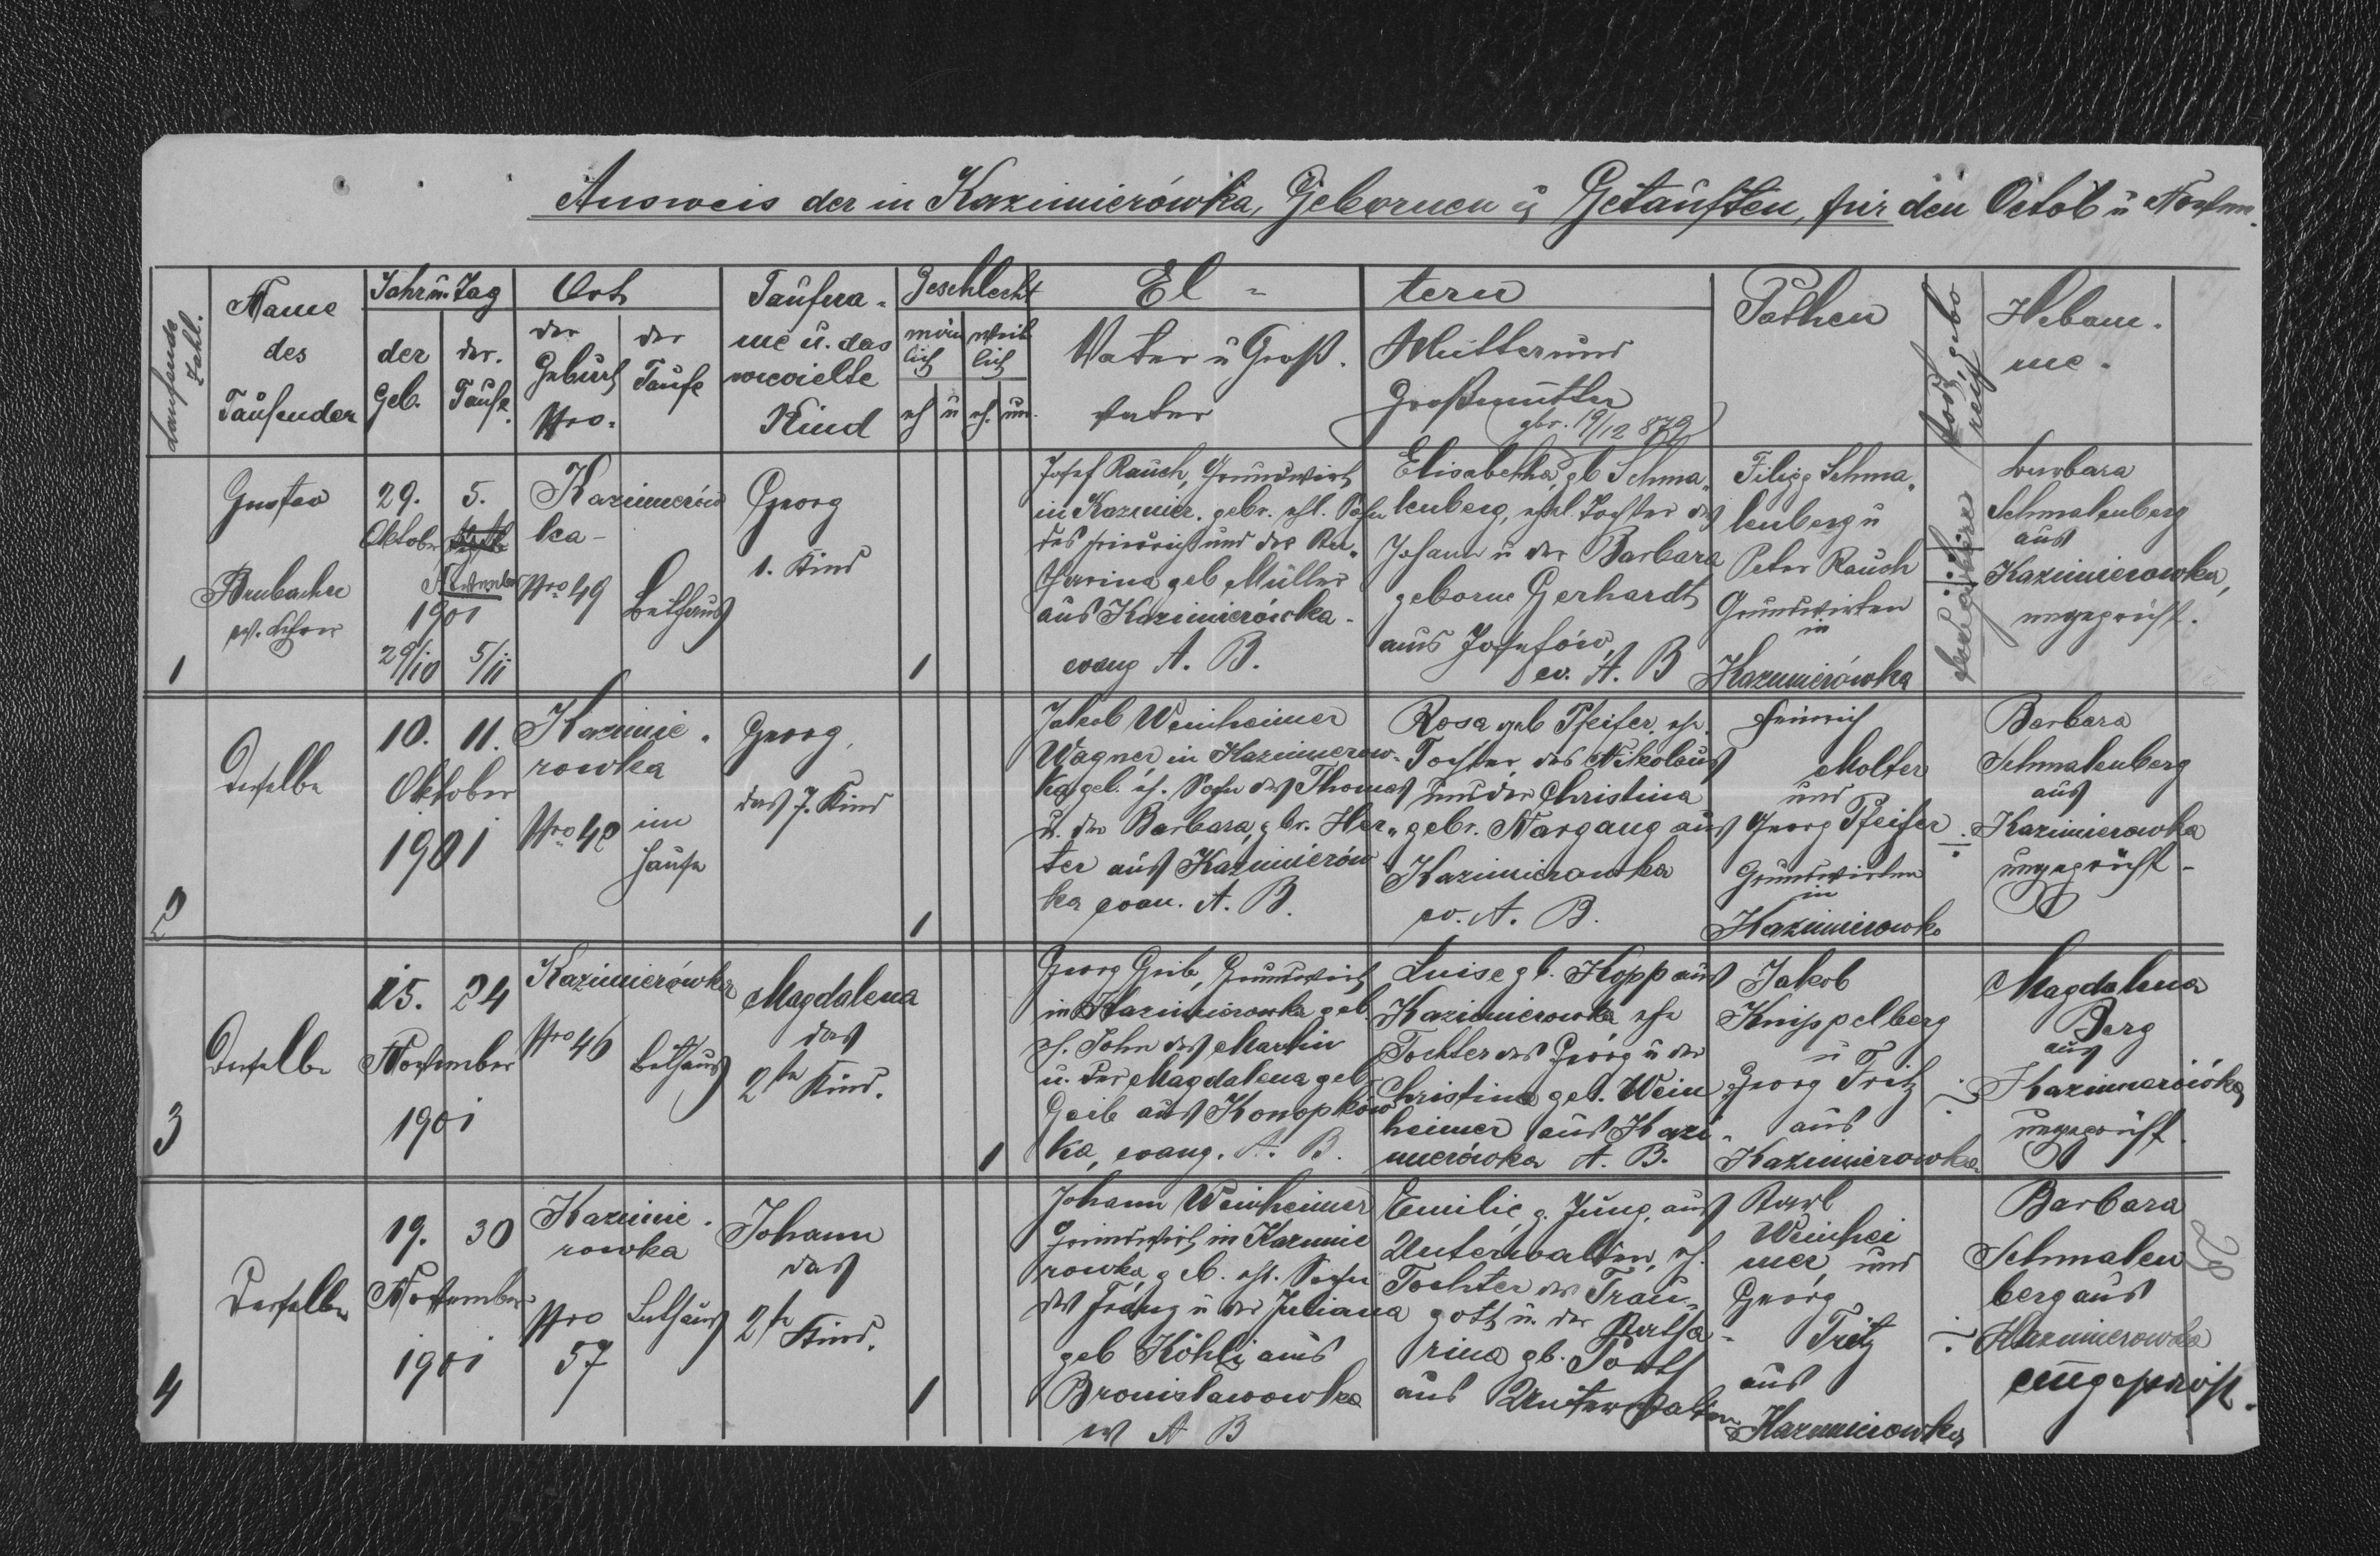 Ausweis der in Kazimierówka, Gebornen u Getauften, für den Octob u Novbm.
laufende Zahl.
Name
des
Taufenden
Jahr u. Tag
der
Geb.
der
Taufe.
Ort
der
Geburt
Nro.
der
Taufe
Taufna-
me u. das
wievielte
Kind
Geschlecht
män
lich
weib
lich
eh u eh. un.
El - tern
Vater u Groß.
vater
Mutter und
Großmutter
gbr. 19/12 879
Pathen
tod, gebo
ren
Hebam.
me.
1
Gustav
Brubacher
ev. Lehrer
29.
Oktober
5.
November
1901
29/10
5/11
Kazimierów
ka -
Nro 49
Bethaus
Georg
1. Kind
1
Josef Rauch, Grundwirt
in Kazimier. gebr. ehl. Sohn
des Heinrich und der Kat-
harina geb Müller
aus Kazimierówka.
evang A. B.
Elisabetha, gb Schma-
lenberg, ehel. Tochter des
Johann u der Barbara
geborne Gerhardt
aus Josefów,
ev. A. B
Filipp Schma-
lenberg u
Peter Rauch
Grundwirten
in
Kazimierówka
Barbara
Schmalenberg
aus
Kazimierowka,
ungeprüft.
2
Derselbe
10. 11.
Oktober
1901
Kazimie-
rowka
Nro 42
im
Hause
Georg,
das 7. Kind
1
Jakob Weinheimer
Wagner, in Kazimierow-
ka, geb. eh. Sohn des Thomas
u. der Barbara, gbr. Her-
ter aus Kazimierów
ka evan. A. B.
Rosa geb Pfeifer, eh.
Tochter des Nikolaus
und der Christina
gebr. Nargang aus
Kazimierowka
ev. A. B.
Heinrich
Molter
und
Georg Pfeifer
Grundwirten
in
Kazimierowka
Barbara
Schmalenberg
aus
Kazimierowka
ungeprüft -
3
Derselbe
15. 24
November
1901
Kazimierówka
Nro 46
Bethaus
Magdalena
das
2te Kind.
1
Georg Geib, Grundwirt
in Kazimierowka geb.
eh. Sohn des Martin
u. der Magdalena geb.
Geib aus Konopków
ka, evang. A. B.
Luise gb. Kopp aus
Kazimierowka, ehe
Tochter des Georg u der
Christina geb. Wein
heimer aus Kazi-
mierówka A. B.
Jakob
Knippelberg
u
Georg Fritz
aus
Kazimierowka
Magdalena
Berg
aus
Kazimierówka
ungeprüft.
4
Derselbe
19. 30
November
1901
Kazimie-
rowka
Nro
57
Bethaus
Johann
das
2te Kind.
1
Johann Weinheimer
Grundwirt, in Kazimie
rowka, geb. ehl. Sohn
des Franz u der Juliana
geb Köhli aus
Bronislawowka
ev A B
Emilie, g. Jung, aus
Unterwalden, eh.
Tochter des Trau-
gott u. der Katha-
rina gb.
aus Unterwalden
Karl
Weinhei
mer, und
Georg
Fritz
aus
Kazimierowka
Barbara
Schmalen
berg aus
Kazimierowka
ungeprüft.